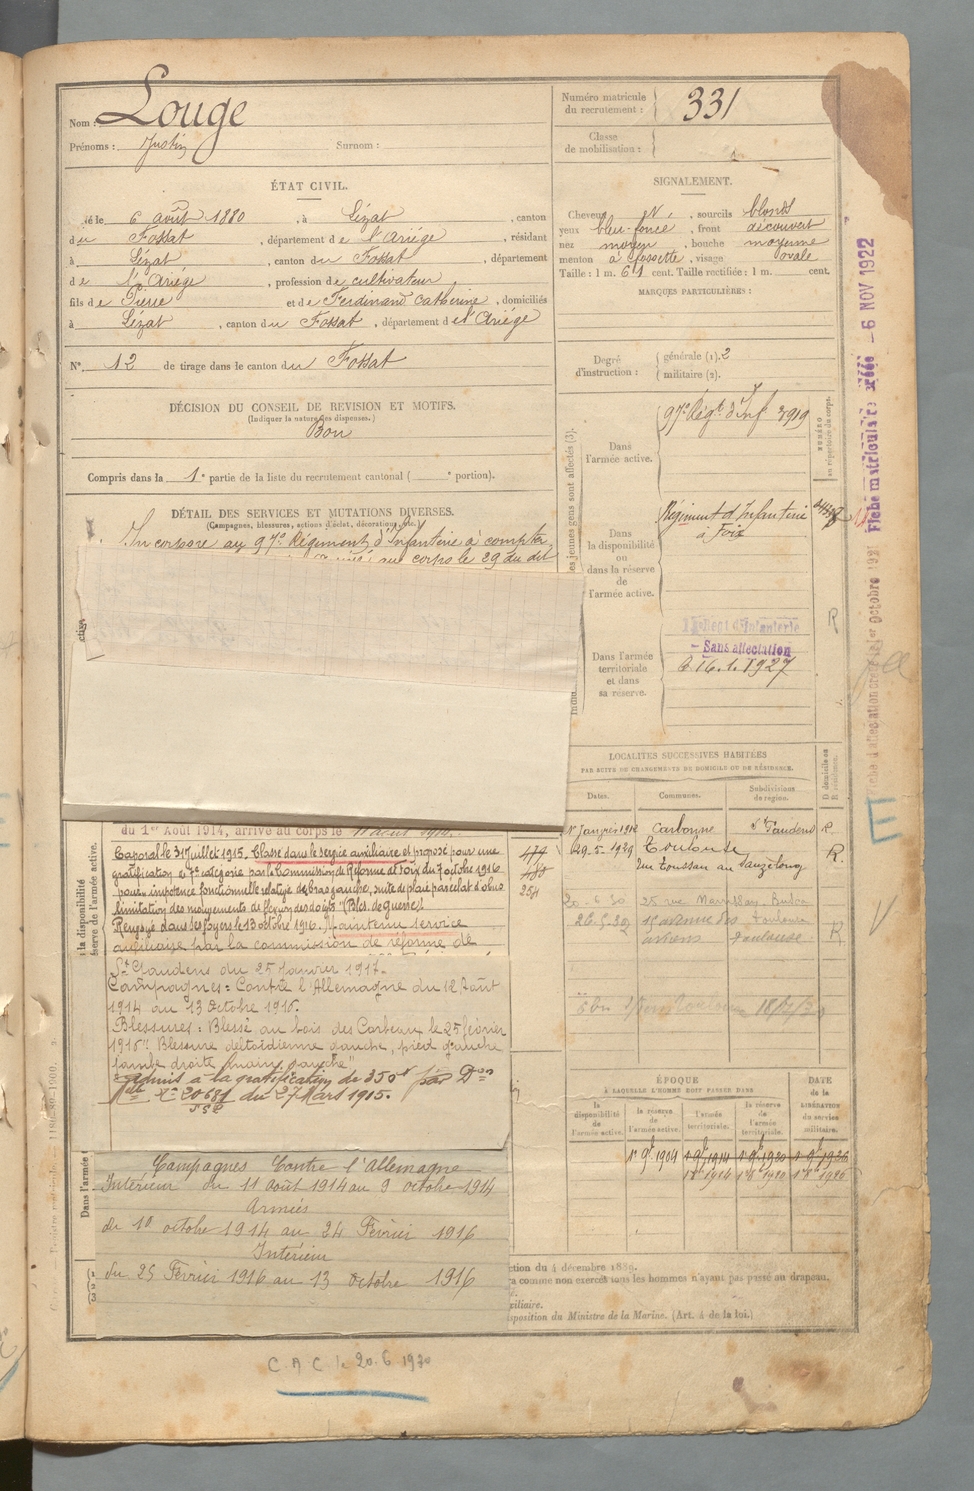 Nom : Louge
Prénoms : Justin Surnom :
Numéro matricule du recrutement : 331
Classe de mobilisation :
ÉTAT CIVIL.
Né le 6 août 1880, à Lézat, canton
du Fossat, département de l'Ariége, résidant
à Lézat, canton du Fossat, département
de l'Ariége, profession de cultivateur
fils de Pierre et de Ferdinand Catherine, domiciliés
à Lézat, canton du Fossat, département de l'Ariége
N° 12 de tirage dans le canton du Fossat
DÉCISION DU CONSEIL DE REVISION ET MOTIFS.
(Indiquer la nature des dispenses.)
Bon
Compris dans la 1e partie de la liste du recrutement cantonal ( e portion).
DÉTAIL DES SERVICES ET MUTATIONS DIVERSES.
(Campagnes, blessures, actions d'éclat, décorations, etc.)
Incorporé au 97e Régiment d'Infanterie à compter
au corps le 29 du dit
du 1er Août 1914, arrivé au corps le 11 août 1914.
Caporal le 31 juillet 1915. Classé dans le service auxiliaire et proposé pour une
gratification de 7e catégorie par la Commission de Réforme de Foix du 7 octobre 1916
pour impotence fonctionnelle relative du bras gauche, suite de plaie par éclat d'obus
limitation des mouvements de flexion des doigts "(Bles. de guerre).
Renvoyé dans ses foyers le 13 octobre 1916. Maintenu service
auxiliaire par la commission de réforme de
St Gaudens du 25 janvier 1917.
Campagnes : Contre l'Allemagne du 12 Août
1914 au 13 Octobre 1916.
Blessures : Blessé au bois des Corbeaux le 25 février
1916 "Blessure deltoïdienne gauche, pied gauche
jambe droite main gauche"
Admis à la gratification de 350f par Don
Mlle N° 20681 du 27 Mars 1915.
Campagnes Contre l'Allemagne
Intérieur du 11 août 1914 au 9 octobre 1914
Armées
du 10 octobre 1914 au 24 Février 1916
Intérieur
du 25 Février 1916 au 13 octobre 1916
C.A.C. le 20.6.1930
SIGNALEMENT.
Cheveux , sourcils blonds
yeux bleu-foncé, front découvert
nez moyen, bouche moyenne
menton à fossette, visage ovale
Taille : 1 m. 61 cent. Taille rectifiée : 1 m. cent.
MARQUES PARTICULIÈRES :
Degré d'instruction : générale (1). 2
militaire (2).
Dans l'armée active.
97e Régt d'Inf 3919
NUMÉRO au répertoire du corps.
Dans la disponibilité ou dans la réserve de l'armée active.
Régiment d'Infanterie
à Foix
Dans l'armée territoriale et dans sa réserve.
Régt d'Infanterie
- Sans affectation
le 16.1.1927
R
Fiche matricule créée - 6 NOV 1922
LOCALITÉS SUCCESSIVES HABITÉES
PAR SUITE DE CHANGEMENTS DE DOMICILE OU DE RÉSIDENCE.
Dates. Communes. Subdivisions de région. D domicile ou R résidence.
1er Janvier 1912 Carbonne St Gaudens R
479 29-5-1929 Toulouse R.
480
254
20-6-30 25 rue
26-5-32 15 avenue des Toulouse R
Toulouse
ÉPOQUE
À LAQUELLE L'HOMME DOIT PASSER DANS
la disponibilité de l'armée active. la réserve de l'armée active. l'armée territoriale. la réserve de l'armée territoriale.
DATE de la LIBÉRATION du service militaire.
1er 9bre 1904 1er 9bre 1914 1er 9bre 1920 1er 9bre 1926
1er 8bre 1914 1er 8bre 1920 1er 8bre 1926
ction du 4 décembre 1889.
comme non exercés tous les hommes n'ayant pas passé au drapeau.
xiliaire.
sposition du Ministre de la Marine. (Art. 4 de la loi.)